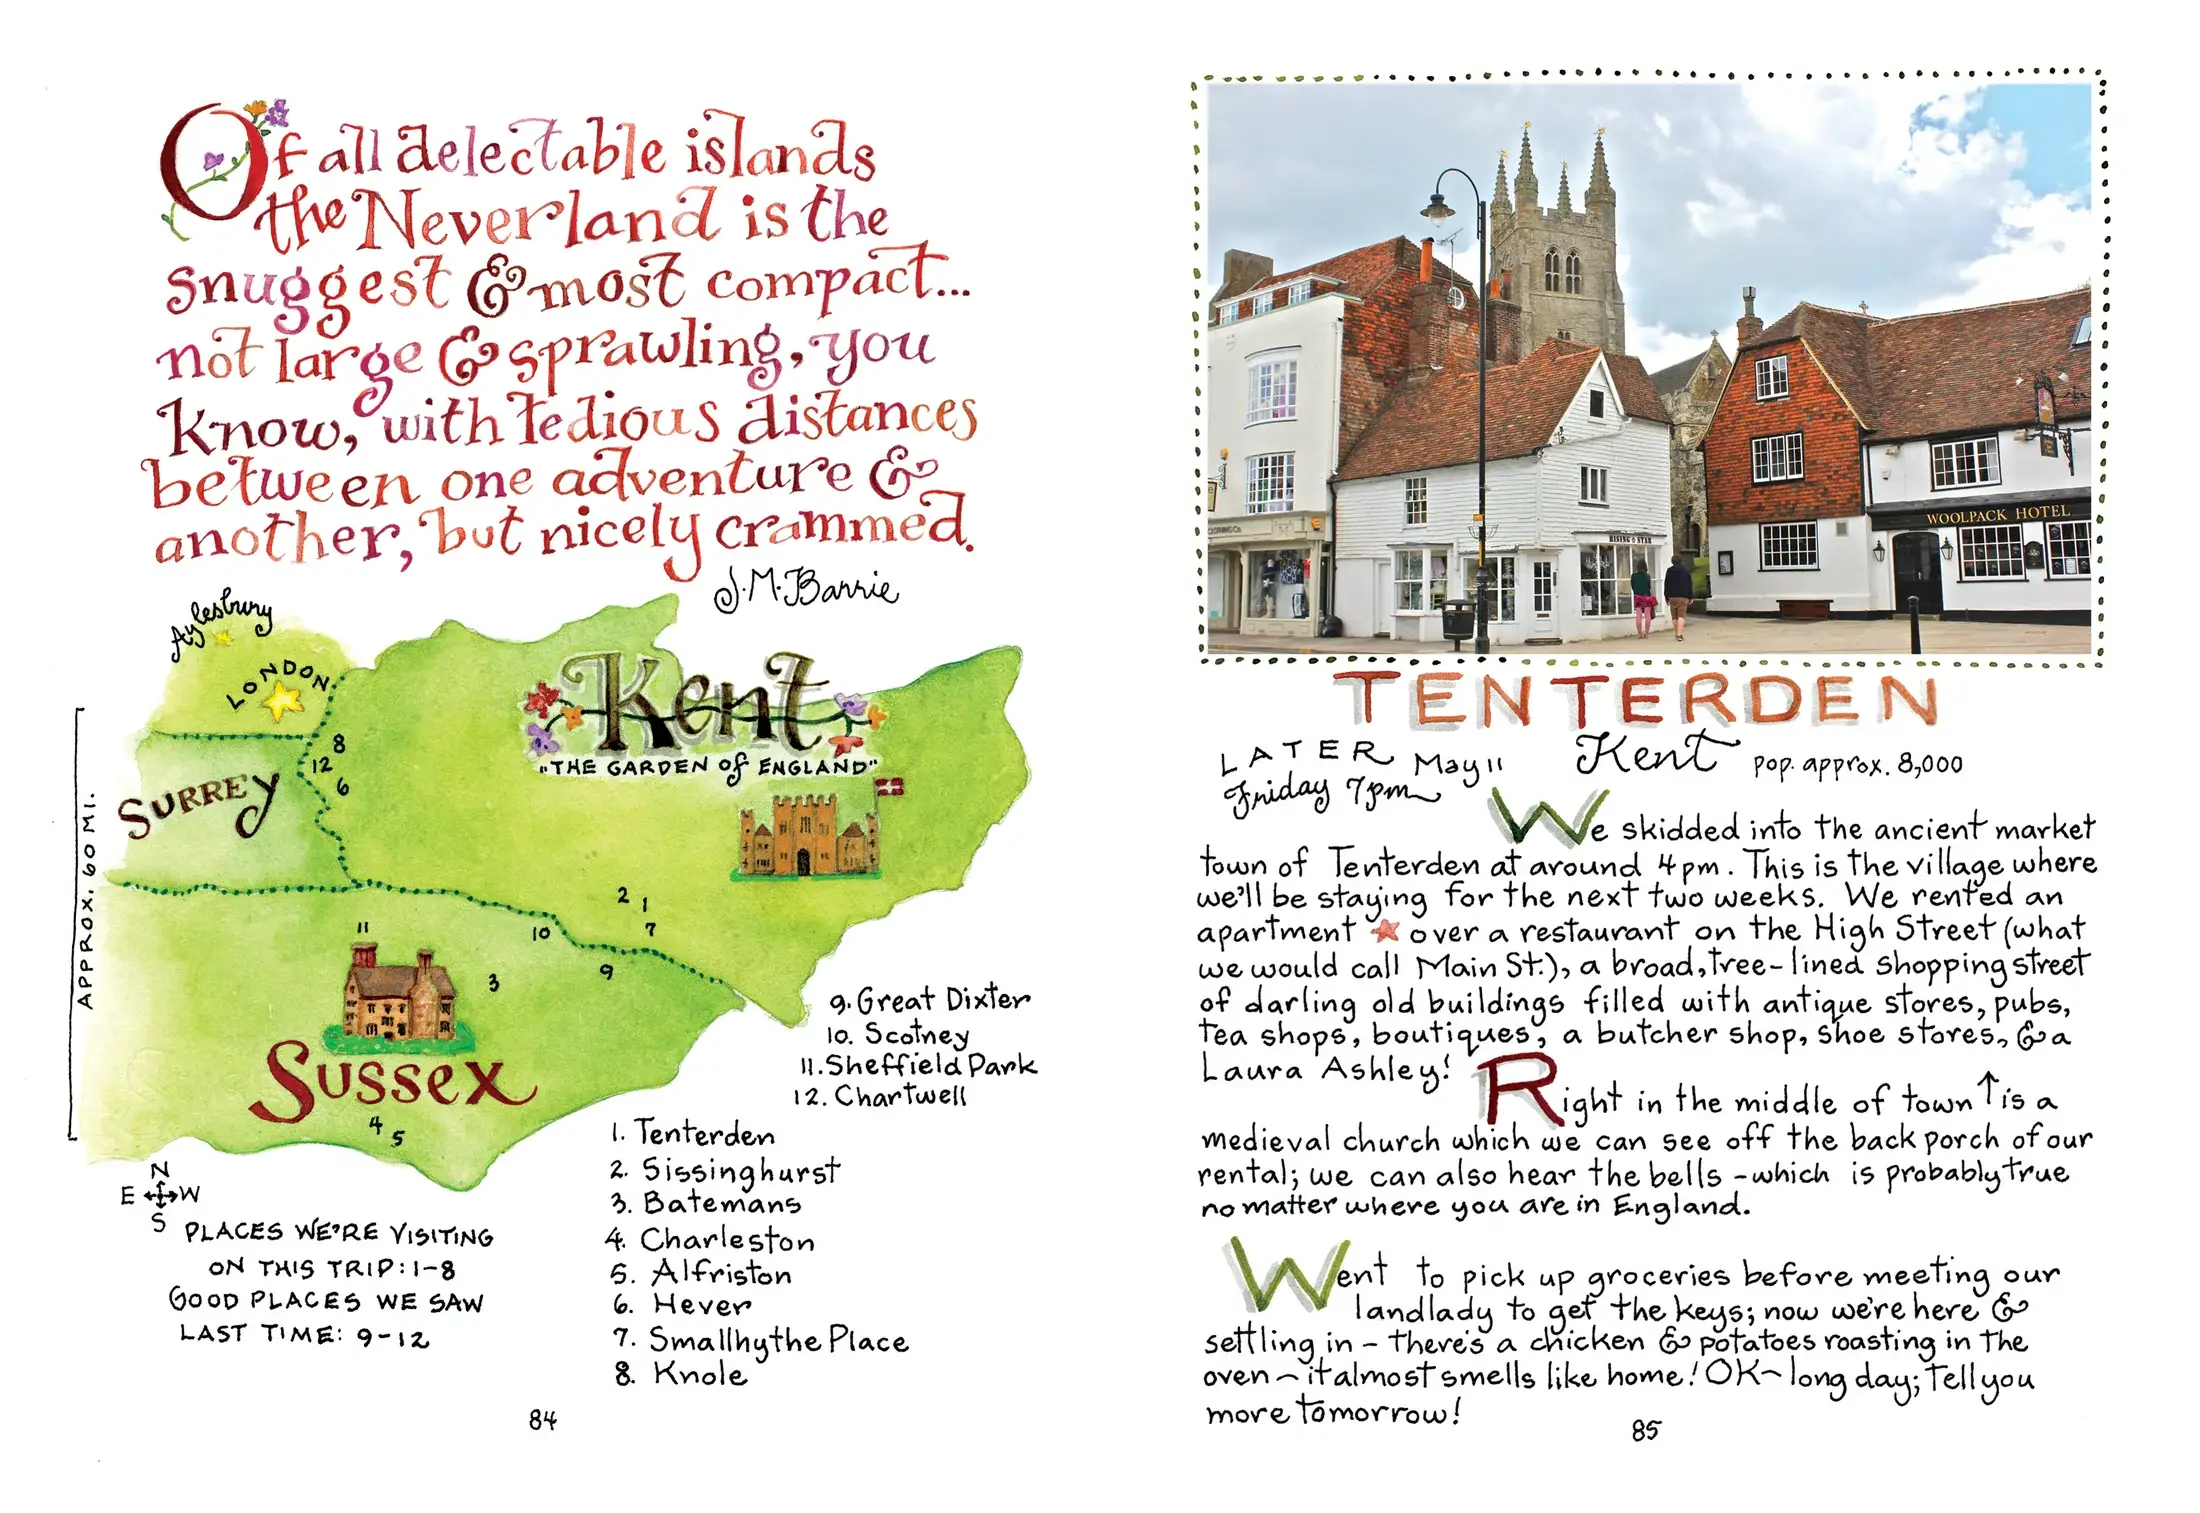 Of all delectable islands
the Neverland is the
snuggest & most compact...
not large & sprawling, you
know, with tedious distances
between one adventure &
another, but nicely crammed.
J.M.Barrie
Aylesbury
LONDON
SURREY
Kent
"THE GARDEN of ENGLAND"
8
12
6
2
1
7
10
9
11
3
SUSSEX
4
5
APPROX. 60 MI.
N
E W
S
PLACES WE'RE VISITING
ON THIS TRIP: 1-8
GOOD PLACES WE SAW
LAST TIME: 9-12
9. Great Dixter
10. Scotney
11. Sheffield Park
12. Chartwell
1. Tenterden
2. Sissinghurst
3. Batemans
4. Charleston
5. Alfriston
6. Hever
7. Smallhythe Place
8. Knole
84
WOOLPACK HOTEL
RISING STAR
TENTERDEN
LATER May 11
Friday 7pm
Kent pop. approx. 8,000
We skidded into the ancient market
town of Tenterden at around 4pm. This is the village where
we'll be staying for the next two weeks. We rented an
apartment over a restaurant on the High Street (what
we would call Main St.), a broad, tree-lined shopping street
of darling old buildings filled with antique stores, pubs,
tea shops, boutiques, a butcher shop, shoe stores, & a
Laura Ashley!
Right in the middle of town ↑ is a
medieval church which we can see off the back porch of our
rental; we can also hear the bells - which is probably true
no matter where you are in England.
Went to pick up groceries before meeting our
landlady to get the keys; now we're here &
settling in - there's a chicken & potatoes roasting in the
oven ~ it almost smells like home! OK ~ long day; tell you
more tomorrow!
85